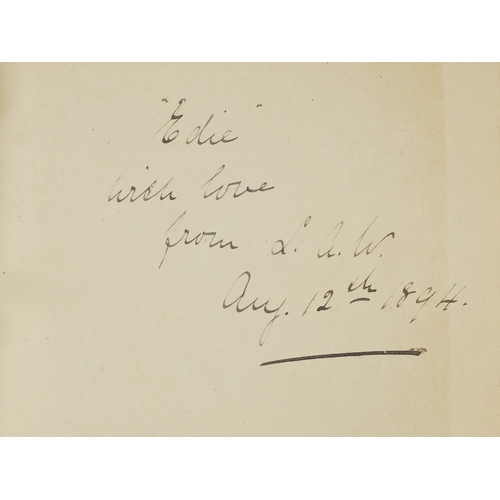 "Edie"
with love
from L. A. W.
Aug. 12th 1894.